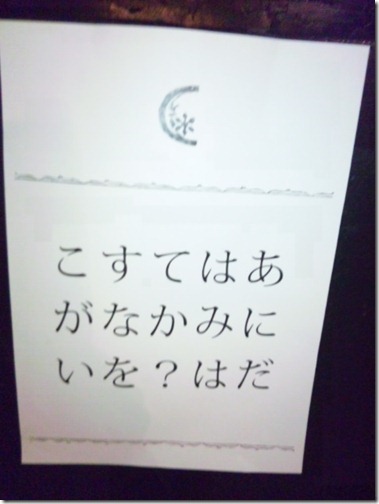 こすてはあ
がなかみに
いを？はだ